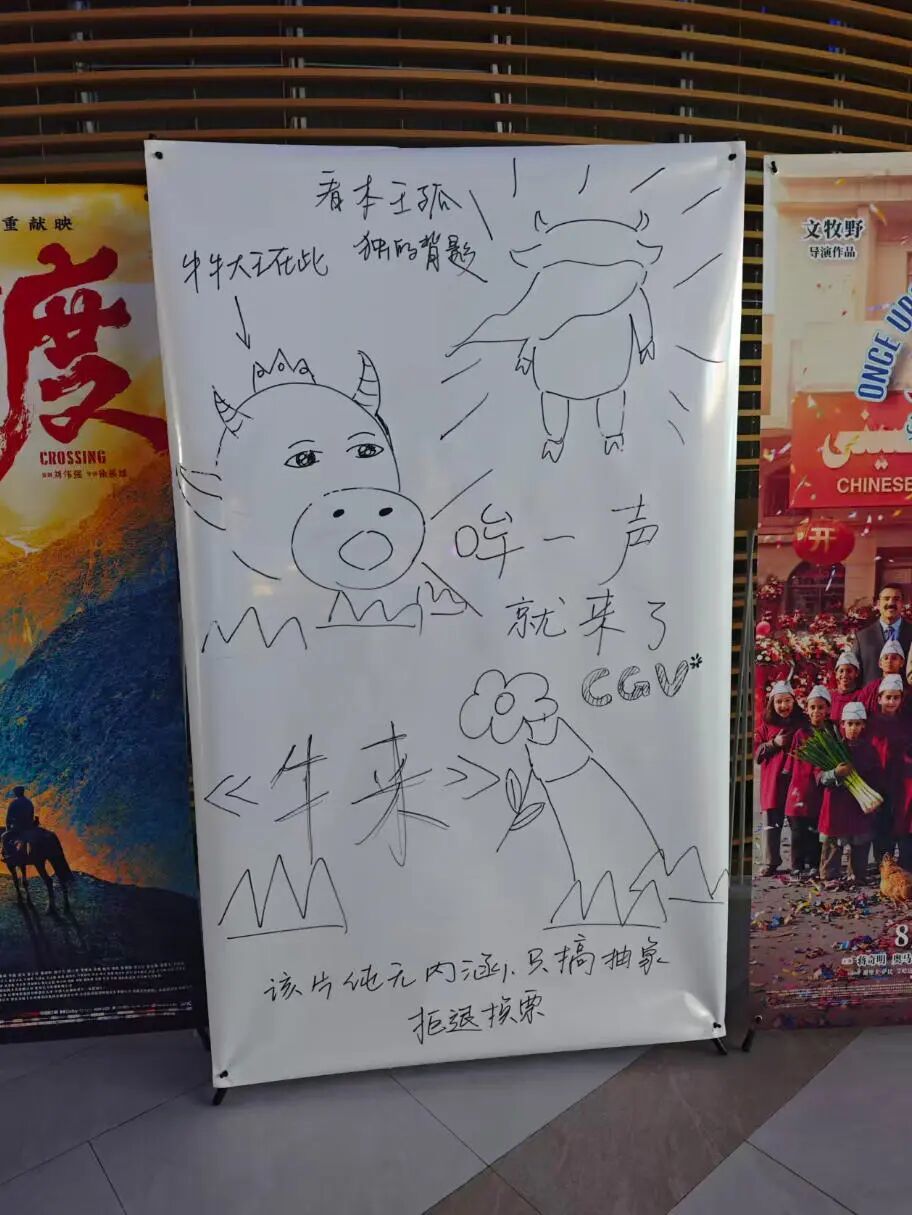 看本王孤
独的背影
牛牛大王在此
哞一声
就来了
CGV
《牛来》
该片纯无内涵,只搞抽象
拒退换票
重献映
度
CROSSING
文牧野
导演作品
ONCE UP
CHINESE
开
8